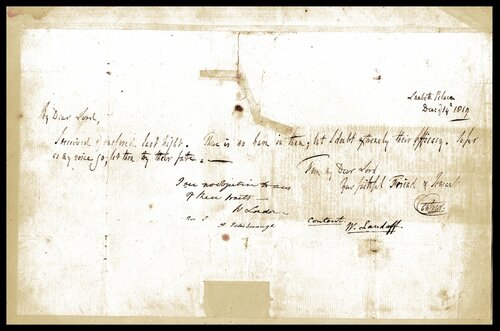 Lambeth Palace
Decr 14th 1819
My Dear Lord,
I received the enclosed last night. There is no harm in them, but I doubt extremely their efficacy. So far
as my voice go, let them try their fate. —
I am my Dear Lord
Your faithful Friend & Servant
I see no objection to any
of these tracts —
W London
Nor I
H Peterborough
Content.
W. Landaff.